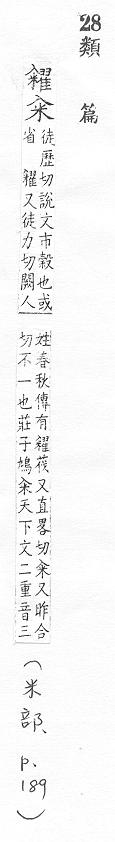 28
類篇
糴籴 徒歷切說文市穀也或
省 糴又徒力切闕人
姓春秋傳有糴茷又直畧切籴又昨合
切不一也莊子鳩籴天下文二重音三
(米部、p.189)